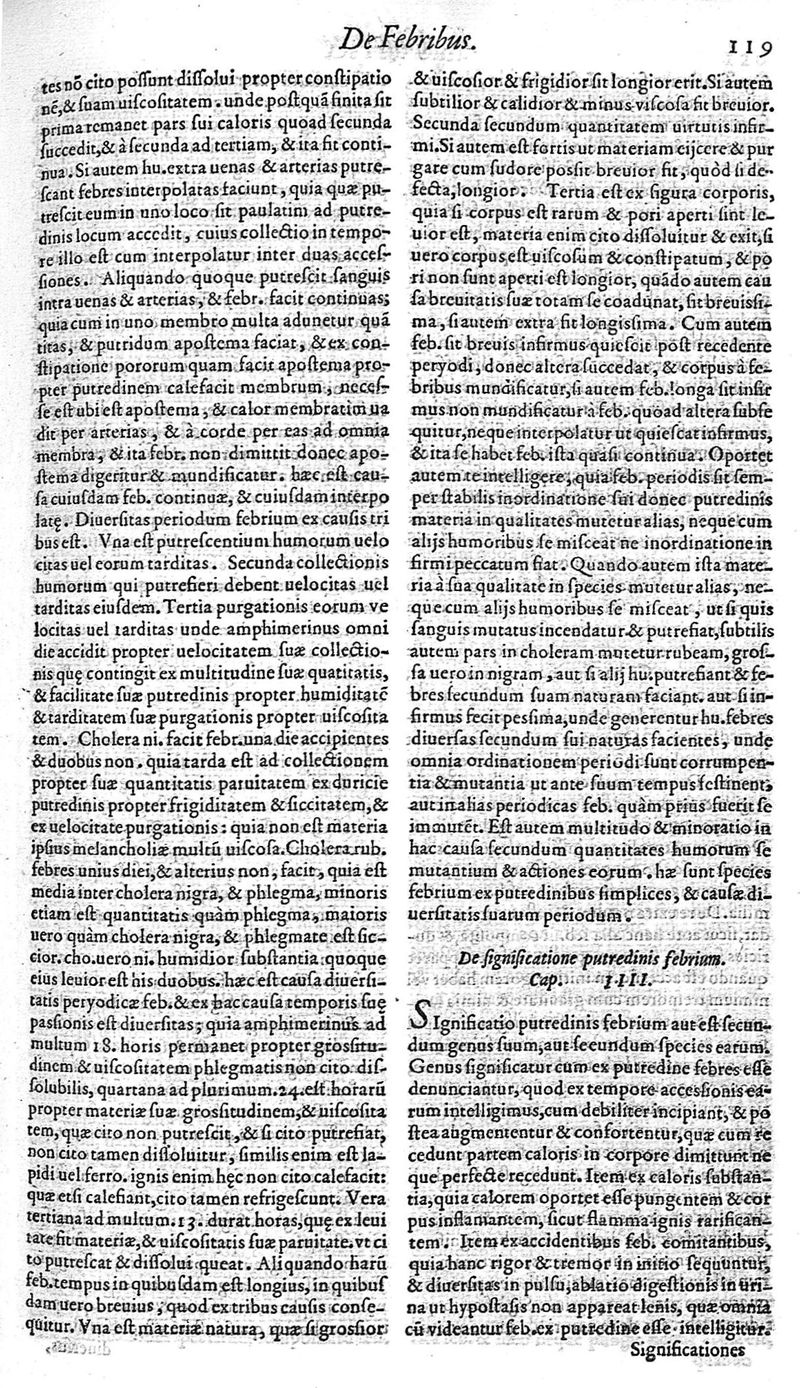 De Febribus.
119
tes nõ cito possunt dissolui propter constipatio
nẽ, & suam uiscositatem. unde postquã finita sit
prima remanet pars sui caloris quoad secunda
succedit, & à secunda ad tertiam, & ita fit conti-
nua. Si autem hu. extra uenas & arterias putre-
scant febres interpolatas faciunt, quia quæ pu-
trescit eum in uno loco sit paulatim ad putre-
dinis locum accedit, cuius collectio in tempo-
re illo est cum interpolatur inter duas acces-
siones. Aliquando quoque putrescit sanguis
intra uenas & arterias, & febr. facit continuas;
quia cum in uno membro multa adunetur quã
titas, & putridum apostema faciat, & ex con-
stipatione pororum quam facit apostema pro-
pter putredinem calefacit membrum, neces-
se est ubi est apostema, & calor membratim ua
dit per arterias, & à corde per eas ad omnia
membra, & ita febr. non dimittit donec apo-
stema digeritur & mundificatur. hæc est cau-
sa cuiusdam feb. continuæ, & cuiusdam interpo
latę. Diuersitas periodum febrium ex causis tri
bus est. Vna est putrescentium humorum uelo
citas uel eorum tarditas. Secunda collectionis
humorum qui putrefieri debent uelocitas uel
tarditas eiusdem. Tertia purgationis eorum ve
locitas uel tarditas unde amphimerinus omni
die accidit propter uelocitatem suæ collectio-
nis quę contingit ex multitudine suæ quãtitatis,
& facilitate suæ putredinis propter humiditatẽ
& tarditatem suæ purgationis propter uiscosita
tem. Cholera ni. facit febr. una die accipientes
& duobus non. quia tarda est ad collectionem
propter suæ quantitatis paruitatem ex duricie
putredinis propter frigiditatem & siccitatem, &
ex uelocitate purgationis: quia non est materia
ipsius melancholiæ multũ uiscosa. Cholera rub.
febres unius diei, & alterius non, facit, quia est
media inter cholera nigra, & phlegma, minoris
etiam est quantitatis quàm phlegma, maioris
uero quàm cholera nigra, & phlegmate est sic-
cior. cho. uero ni. humidior substantia quoque
eius leuior est his duobus. hæc est causa diuersi-
tatis peryodicæ feb. & ex hac causa temporis suę
passionis est diuersitas; quia amphimerinus ad
multum 18. horis permanet propter grossitu-
dinem & uiscositatem phlegmatis non cito dis-
solubilis, quartana ad plurimum. 24. est horarũ
propter materiæ suæ grossitudinem, & uiscosita
tem, quæ cito non putrescit, & si cito putrefiat,
non cito tamen dissoluitur, similis enim est la-
pidi uel ferro. ignis enim hęc non cito calefacit:
quæ etsi calefiant, cito tamen refrigescunt. Vera
tertiana ad multum. 13. durat horas, quę ex leui
tate fit materiæ, & uiscositatis suæ paruitate. vt ci
to putrescat & dissolui queat. Aliquando harũ
feb. tempus in quibusdam est longius, in quibus
dam uero breuius, quod ex tribus causis conse-
quitur. Vna est materiæ natura, quæ si grossior
& uiscosior & frigidior sit longior erit. Si autem
subtilior & calidior & minus viscosa fit breuior.
Secunda secundum quantitatem uirtutis infir-
mi. Si autem est fortis ut materiam eijcere & pur
gare cum sudore possit breuior fit, quòd si de-
fecta, longior. Tertia est ex figura corporis,
quia si corpus est rarum & pori aperti sint le-
uior est, materia enim cito dissoluitur & exit, si
uero corpus est uiscosum & constipatum, & po
ri non sunt aperti est longior, quãdo autem cau
sa breuitatis suæ totam se coadunat, fit breuissi-
ma, si autem extra fit longissima. Cum autem
feb. sit breuis infirmus quiescit post recedente
peryodi, donec altera succedat, & corpus à fe-
bribus mundificatur, si autem feb. longa sit infir
mus non mundificatur à feb. quoad altera subse
quitur, neque interpolatur ut quiescat infirmus,
& ita se habet feb. ista quasi continua. Oportet
autem te intelligere, quia feb. periodis sit sem-
per stabilis in ordinatione sui donec putredinis
materia in qualitates mutetur alias, neque cum
alijs humoribus se misceat ne inordinatione in
firmi peccatum fiat. Quando autem ista mate-
ria à sua qualitate in species mutetur alias, ne-
que cum alijs humoribus se misceat, ut si quis
sanguis mutatus incendatur & putrefiat, subtilis
autem pars in choleram mutetur rubeam, gros-
sa uero in nigram, aut si alij hu. putrefiant & fe-
bres secundum suam naturam faciant. aut si in-
firmus fecit pessima, unde generentur hu. febres
diuersas secundum sui naturas facientes, unde
omnia ordinationem periodi sunt corrumpen-
tia & mutantia ut ante suum tempus festinent,
aut in alias periodicas feb. quàm prius fuerit se
immutẽt. Est autem multitudo & minoratio in
hac causa secundum quantitates humorum se
mutantium & actiones eorum. hæ sunt species
febrium ex putredinibus simplices, & causæ di-
uersitatis suarum periodum.
De significatione putredinis febrium.
Cap. IIII.
SIgnificatio putredinis febrium aut est secun-
dum genus suum, aut secundum species earum.
Genus significatur cum ex putredine febres esse
denunciantur, quod ex tempore accessionis ea-
rum intelligimus, cum debiliter incipiant, & po
stea augmententur & confortentur, quæ cum re
cedunt partem caloris in corpore dimittunt ne
que perfecte recedunt. Item ex caloris substan-
tia, quia calorem oportet esse pungentem & cor
pus inflamantem, sicut flamma ignis rarifican-
tem. Item ex accidentibus feb. comitantibus,
quia hanc rigor & tremor in initio sequuntur,
& diuersitas in pulsu, ablatio digestionis in uri-
na ut hypostasis non appareat lenis, quæ omnia
cũ videantur feb. ex putredine esse intelligitur.
Significationes